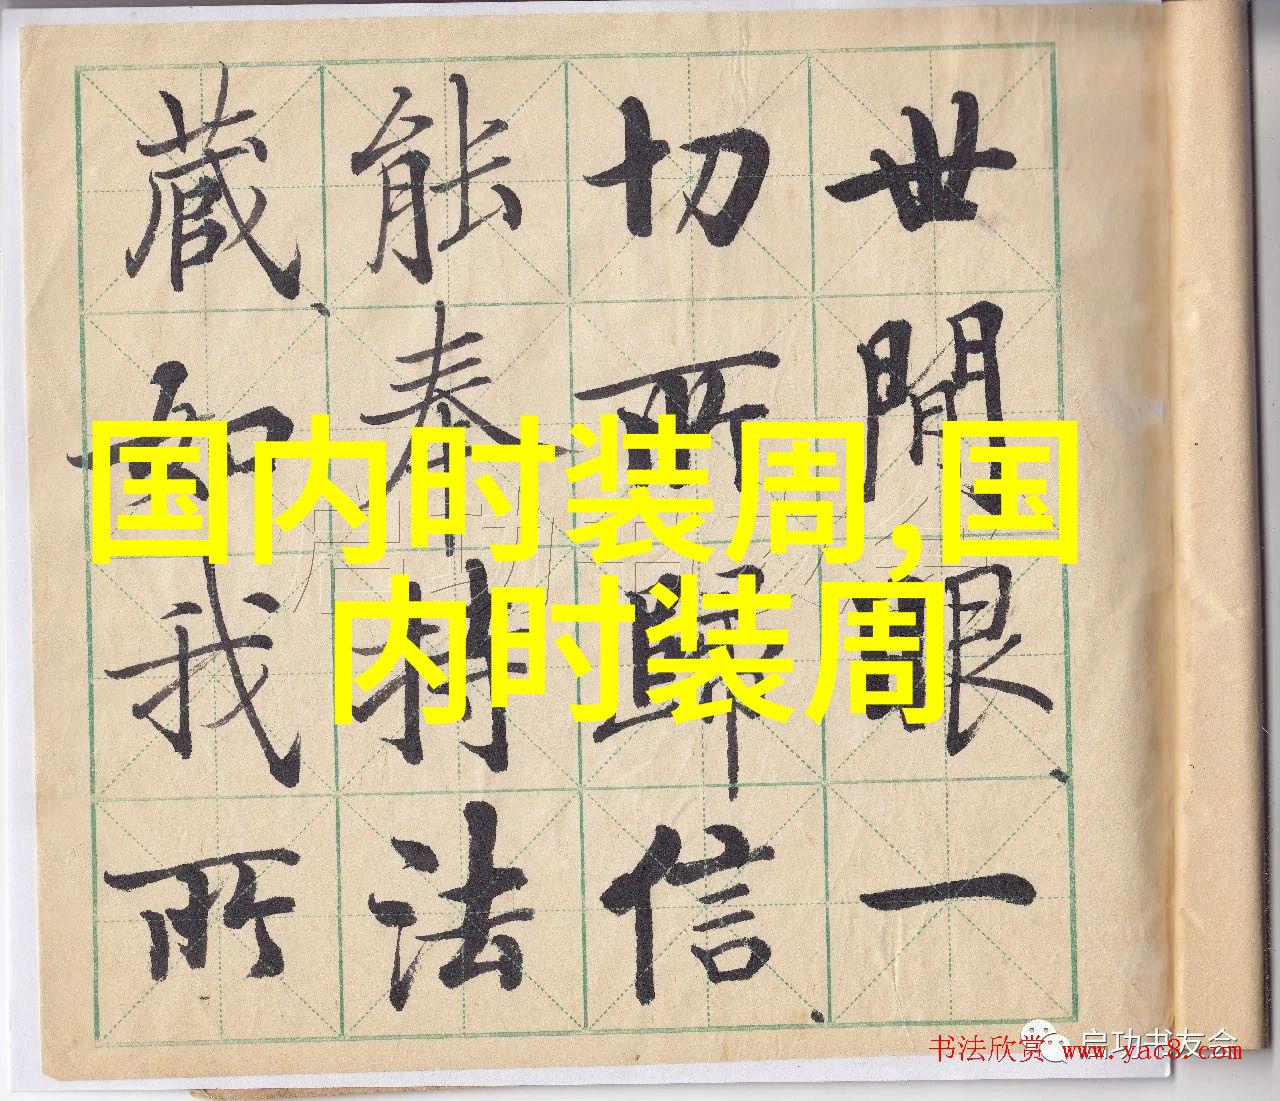 国内时装周,国
内时装周
世閒眼一
切所歸信
能奉持法
藏如我所
启功书友会
书法欣赏 www.yac8.com